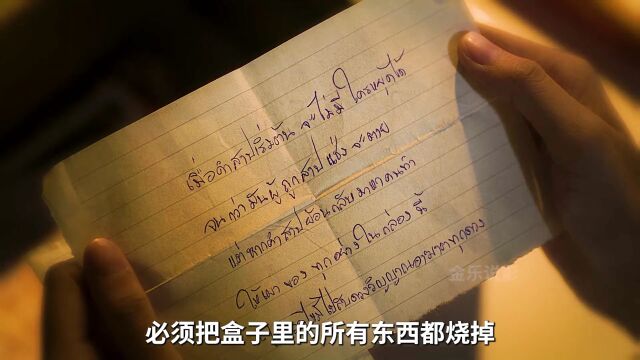 เมื่อคำสาปเริ่มต้น จะไม่มี ใครหยุดได้
จนกว่า มันผู้ ถูกสาป แช่ง จะตาย
แต่ หากคำสาป ย้อนกลับ มาหาคนทำ
ให้เผา ของ ทุกอย่าง ใน กล่อง นี้
金乐说
必须把盒子里的所有东西都烧掉